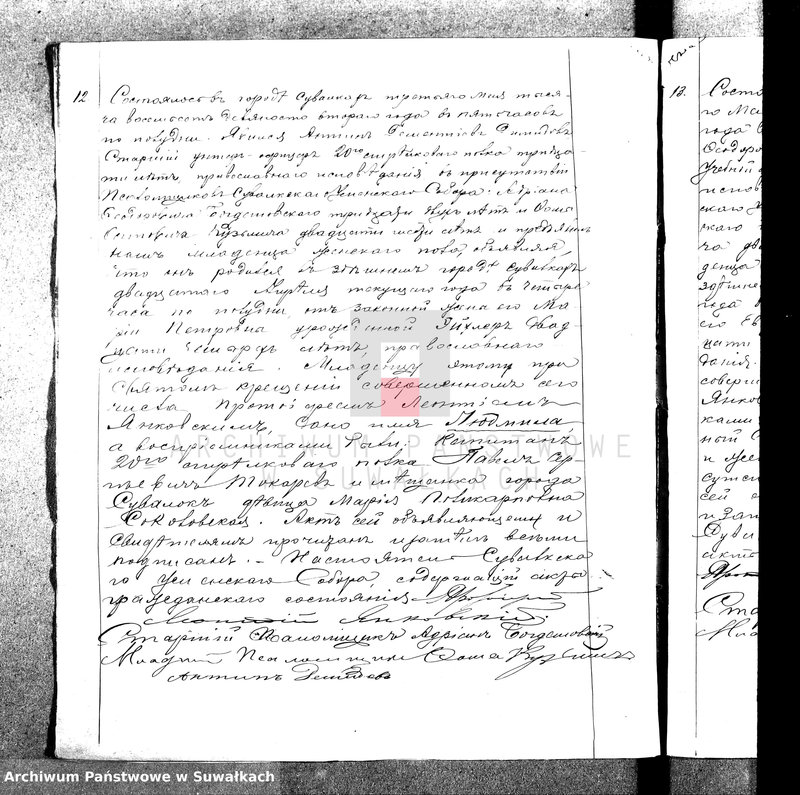 12
Состоялось въ городѣ Сувалкахъ третьяго мая тыся-
ча восемьсотъ девяносто втораго года въ пять часовъ
по полудни. Явился Антипъ Дементіевъ Демидовъ
Старшій унтеръ-офицеръ 20го стрѣлковаго полка тридца-
ти лѣтъ, православнаго исповѣданія въ присутствіи
Псаломщиковъ Сувалкскаго Успенскаго Собора: Адріана
тридцати двухъ лѣтъ и Фомы
Кузьмича двадцати шести лѣтъ и предъявилъ
намъ младенца женскаго пола, объявляя,
что онъ родился въ здѣшнемъ городѣ Сувалкахъ
двадцатого Апрѣля текущаго года въ четыре
часа по полудни отъ законной жены его Ма-
ріи Петровны урожденной двад-
цати четырехъ лѣтъ, православнаго
исповѣданія. Младенцу этому при
Святомъ крещеніи совершенномъ сего
числа Протоіереемъ Леонтіемъ
Янковскимъ, дано имя Людмила,
а воспріемниками были: Капитанъ
20го стрѣлковаго полка Павелъ Сер-
гѣевичъ Токаревъ и мѣщанка города
Сувалокъ дѣвица Марія Поликарповна
Соколовская. Актъ сей объявляющему и
Свидѣтелямъ прочитанъ и затѣмъ всѣми
подписанъ. Настоятель Сувалкска-
го Успенскаго Собора, содержащій акты
гражданскаго состоянія Протоіерей
Леонтій Янковскій.
Старшій Псаломщикъ Адріанъ
Младшій Псаломщикъ Фома Кузьмичъ
Антипъ Демидовъ
13.
Состо
го Ма
года
исповѣ
скаго
ча дв
денца
здѣшне
года
его
цати
данія.
соверш
Янков
ками
ный
сей
и за
Суви
акты
Прот
Ста
Млад
ARCHIWUM PAŃSTWOWE
W SUWAŁKACH
Archiwum Państwowe w Suwałkach